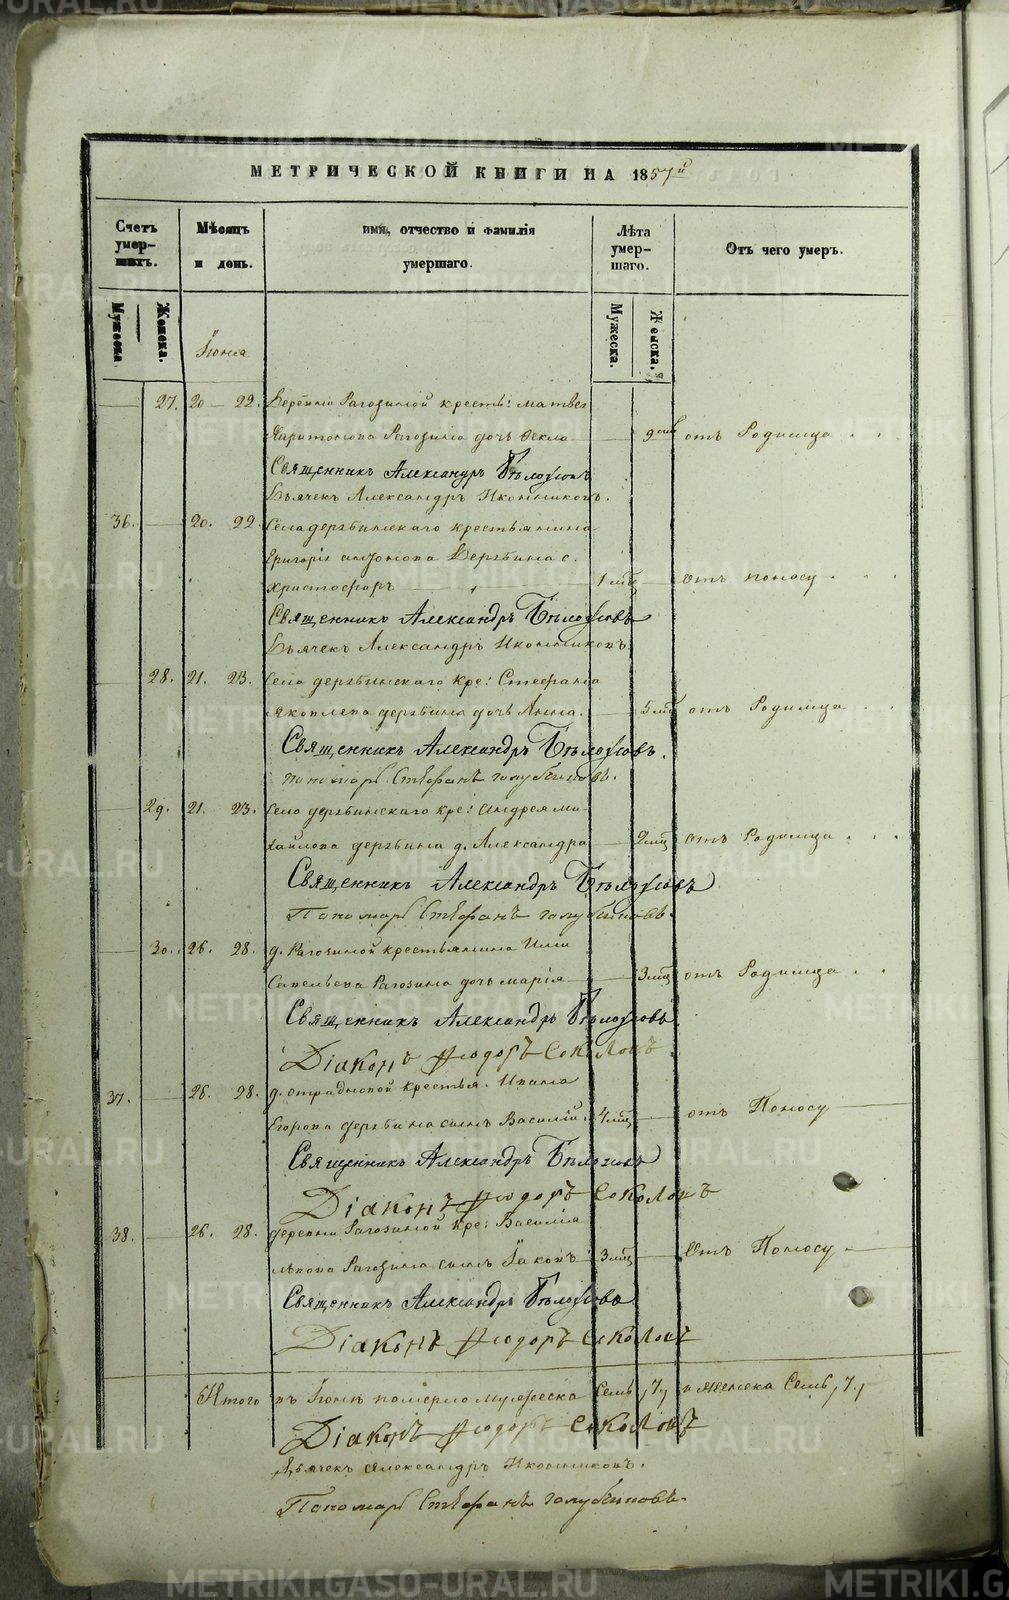 МЕТРИЧЕСКОЙ КНИГИ НА 1857й
Счетъ умер-шихъ.
Мужеска
Женска.
Мѣсяцъ и день.
имя, отчество и фамилія умершаго.
Лѣта умер-шаго.
Мужеска.
Женска.
Отъ чего умеръ.
Іюня
27. 20 22. Деревни Рагозиной крестъ: Матвея
Харитонова Рагозина дочь Фекла 9 отъ Родимца
Священникъ Александръ Бѣлоусовъ
Дьячекъ Александръ Иконниковъ.
36. 20. 22. Села дерябинскаго крестьянина
Григорія Антонова Дерябина с.
Христофоръ 1 мцъ отъ поносу
Священникъ Александръ Бѣлоусовъ
Дьячекъ Александръ Иконниковъ.
28. 21. 23. Села дерябинскаго кре: Стефана
Яковлева дерябина дочь Анна. 5 мцъ отъ Родимца
Священникъ Александръ Бѣлоусовъ.
Пономарь Стефанъ Голубчиковъ.
29. 21. 23. Села дерябинскаго кре: Андрея Ми-
хайлова дерябина д. Александра 2 мцъ отъ Родимца
Священникъ Александръ Бѣлоусовъ
Пономарь Стефанъ Голубчиковъ.
30. 26. 28. д. Рагозиной крестьянина Ильи
Савельева Рагозина дочь Марія 3 мцъ отъ Родимца
Священникъ Александръ Бѣлоусовъ
Діаконъ Ѳеодоръ Соколовъ
37. 26. 28. д. отрадновой крестья. Ивана
Егорова дерябина сынъ Василій. 4 мцъ отъ Поносу
Священникъ Александръ Бѣлоусовъ
Діаконъ Ѳеодоръ Соколовъ
38. 26. 28. деревни Рагозиной кре: Василія
Львова Рагозина сынъ Іаковъ 3 мцъ Отъ Поносу
Священникъ Александръ Бѣлоусовъ
Діаконъ Ѳеодоръ Соколовъ
Итого въ Іюнѣ померло мужеска Семь, 7, и женска Семь, 7,
Діаконъ Ѳеодоръ Соколовъ
Дьячекъ Александръ Иконниковъ.
Пономарь Стефанъ Голубчиковъ.
METRIKI.GASO-URAL.RU